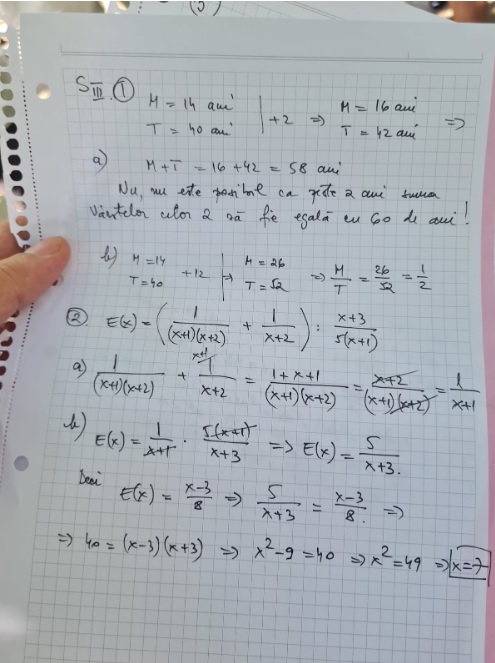 S III. ①
M = 14 ani | +2 => M = 16 ani =>
T = 40 ani | T = 42 ani
a) M+T = 16+42 = 58 ani
Nu, nu este posibil ca peste 2 ani suma
vârstelor celor 2 să fie egală cu 60 de ani!
b) M = 14 | +12 => M = 26 => M/T = 26/52 = 1/2
T = 40 | T = 52
②. E(x) = (1/((x+1)(x+2)) + 1/(x+2)) : (x+3)/(5(x+1))
a) 1/((x+1)(x+2)) + x+1) 1/(x+2) = (1+x+1)/((x+1)(x+2)) = (x+2)/((x+1)(x+2)) = 1/(x+1)
b) E(x) = 1/(x+1) · 5(x+1)/(x+3) => E(x) = 5/(x+3).
Deci E(x) = (x-3)/8 => 5/(x+3) = (x-3)/8. =>
=> 40 = (x-3)(x+3) => x²-9 = 40 => x² = 49 => x=7